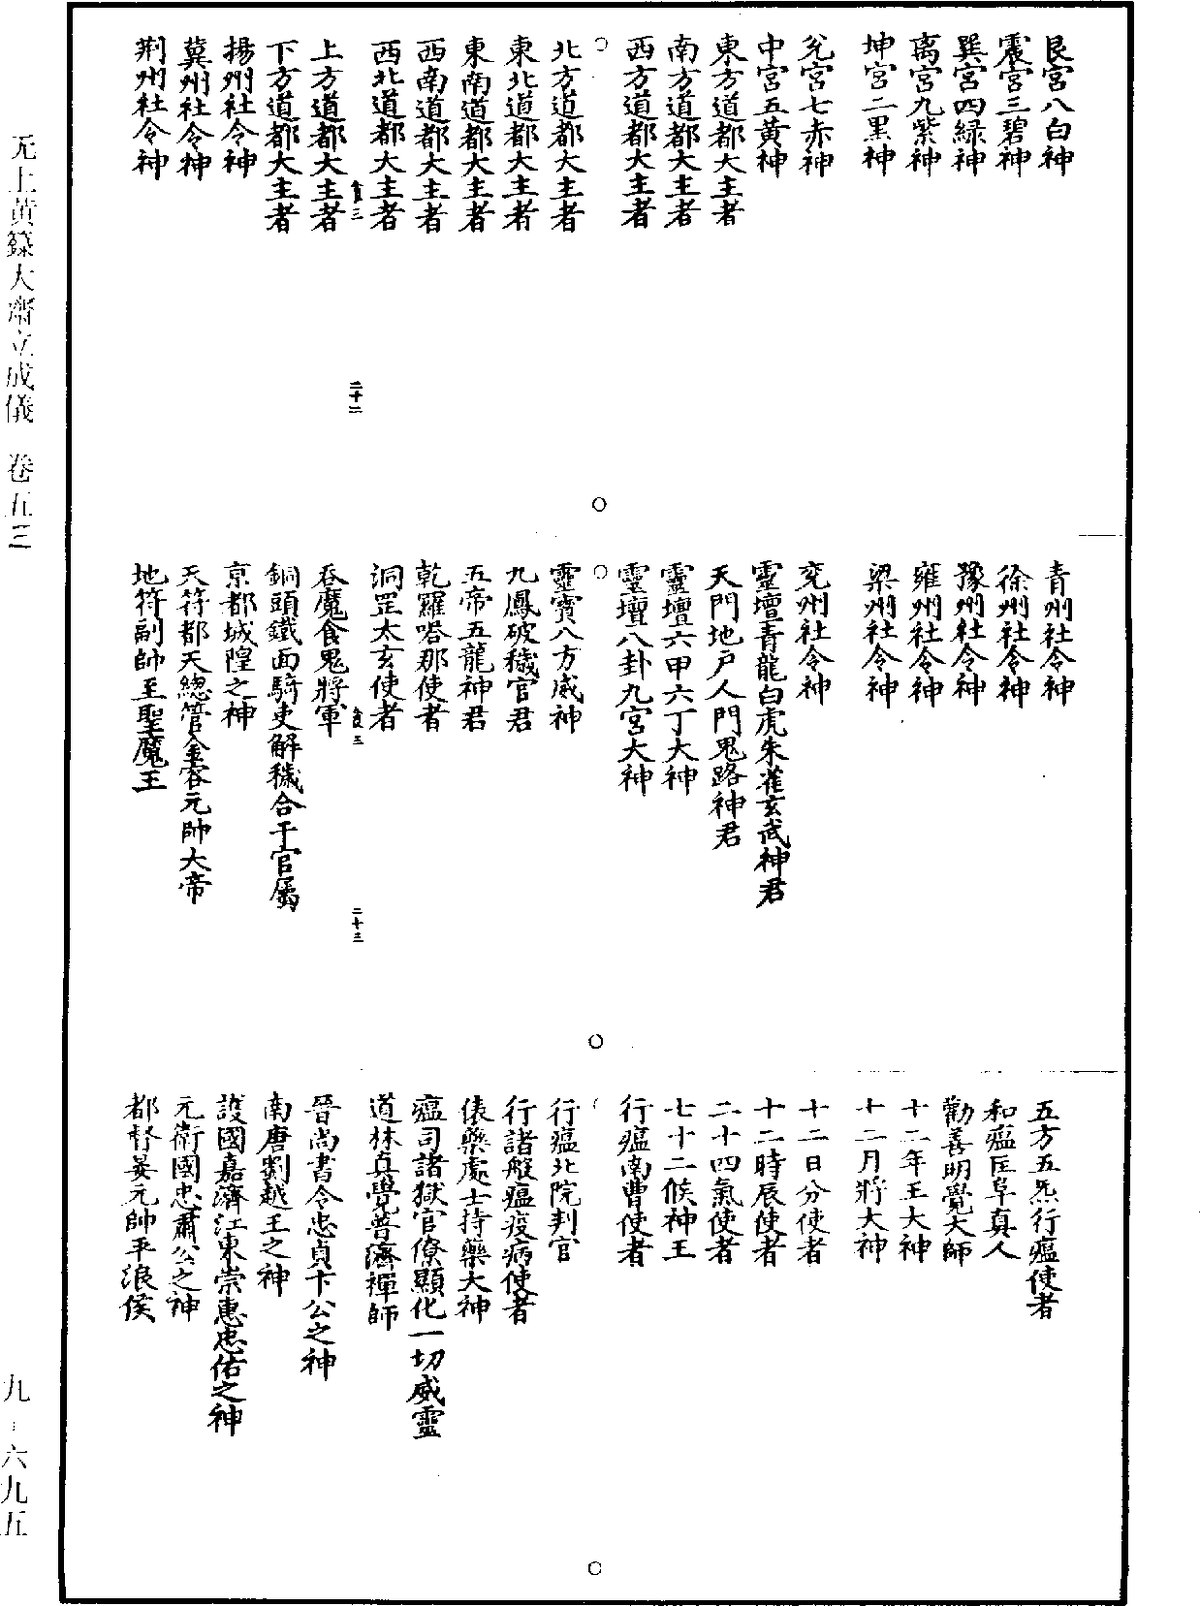 艮宮八白神
震宮三碧神
巽宮四綠神
离宮九紫神
坤宮二黑神
兊宮七赤神
中宮五黃神
東方道都大主者
南方道都大主者
西方道都大主者
北方道都大主者
東北道都大主者
東南道都大主者
西南道都大主者
西北道都大主者
二十二
上方道都大主者
下方道都大主者
揚州社令神
冀州社令神
荊州社令神
青州社令神
徐州社令神
豫州社令神
雍州社令神
梁州社令神
兖州社令神
靈壇青龍白虎朱雀玄武神君
天門地戶人門鬼路神君
靈壇六甲六丁大神
靈壇八卦九宮大神
靈寶八方威神
九鳳破穢官君
五帝五龍神君
乾羅嗒那使者
洞罡太玄使者
二十三
吞魔食鬼將軍
銅頭鐵面騎吏解穢合干官屬
京都城隍之神
天符都天總管金容元帥大帝
地符副帥至聖魔王
五方五炁行瘟使者
和瘟匡阜真人
勸善明覺大師
十二年王大神
十二月將大神
十二日分使者
十二時辰使者
二十四氣使者
七十二候神王
行瘟南曹使者
行瘟北院判官
行諸般瘟疫病使者
俵藥處士持藥大神
瘟司諸獄官僚顯化一切威靈
道林真覺普濟禪師
晉尚書令忠貞卞公之神
南唐劉越王之神
護國嘉濟江東崇惠忠佑之神
元衛國忠肅公之神
都督晏元帥平浪侯
无上黃籙大齋立成儀 卷五三
九 - 六九五